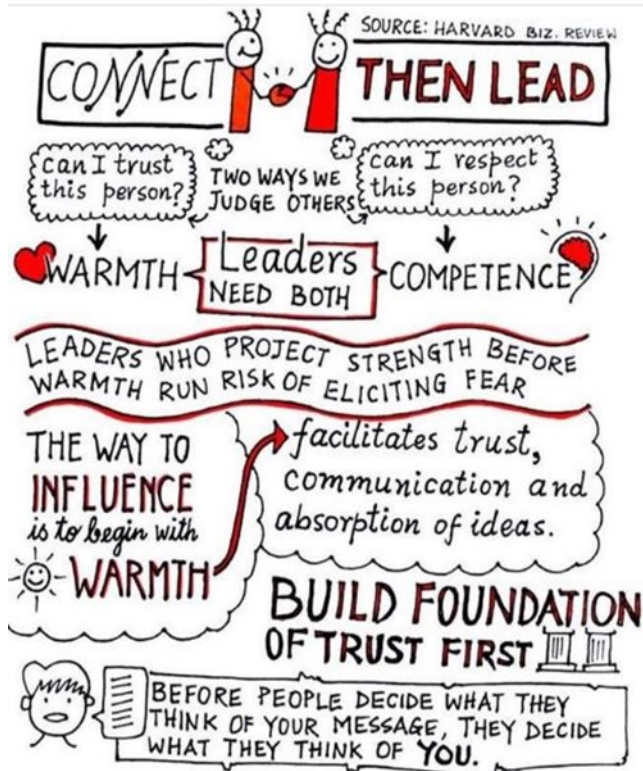 SOURCE: HARVARD BIZ. REVIEW
CONNECT THEN LEAD
can I trust
this person?
TWO WAYS WE
JUDGE OTHERS
can I respect
this person?
WARMTH
Leaders
NEED BOTH
COMPETENCE
LEADERS WHO PROJECT STRENGTH BEFORE
WARMTH RUN RISK OF ELICITING FEAR
THE WAY TO
INFLUENCE
is to begin with
WARMTH
facilitates trust,
communication and
absorption of ideas.
BUILD FOUNDATION
OF TRUST FIRST
BEFORE PEOPLE DECIDE WHAT THEY
THINK OF YOUR MESSAGE, THEY DECIDE
WHAT THEY THINK OF YOU.